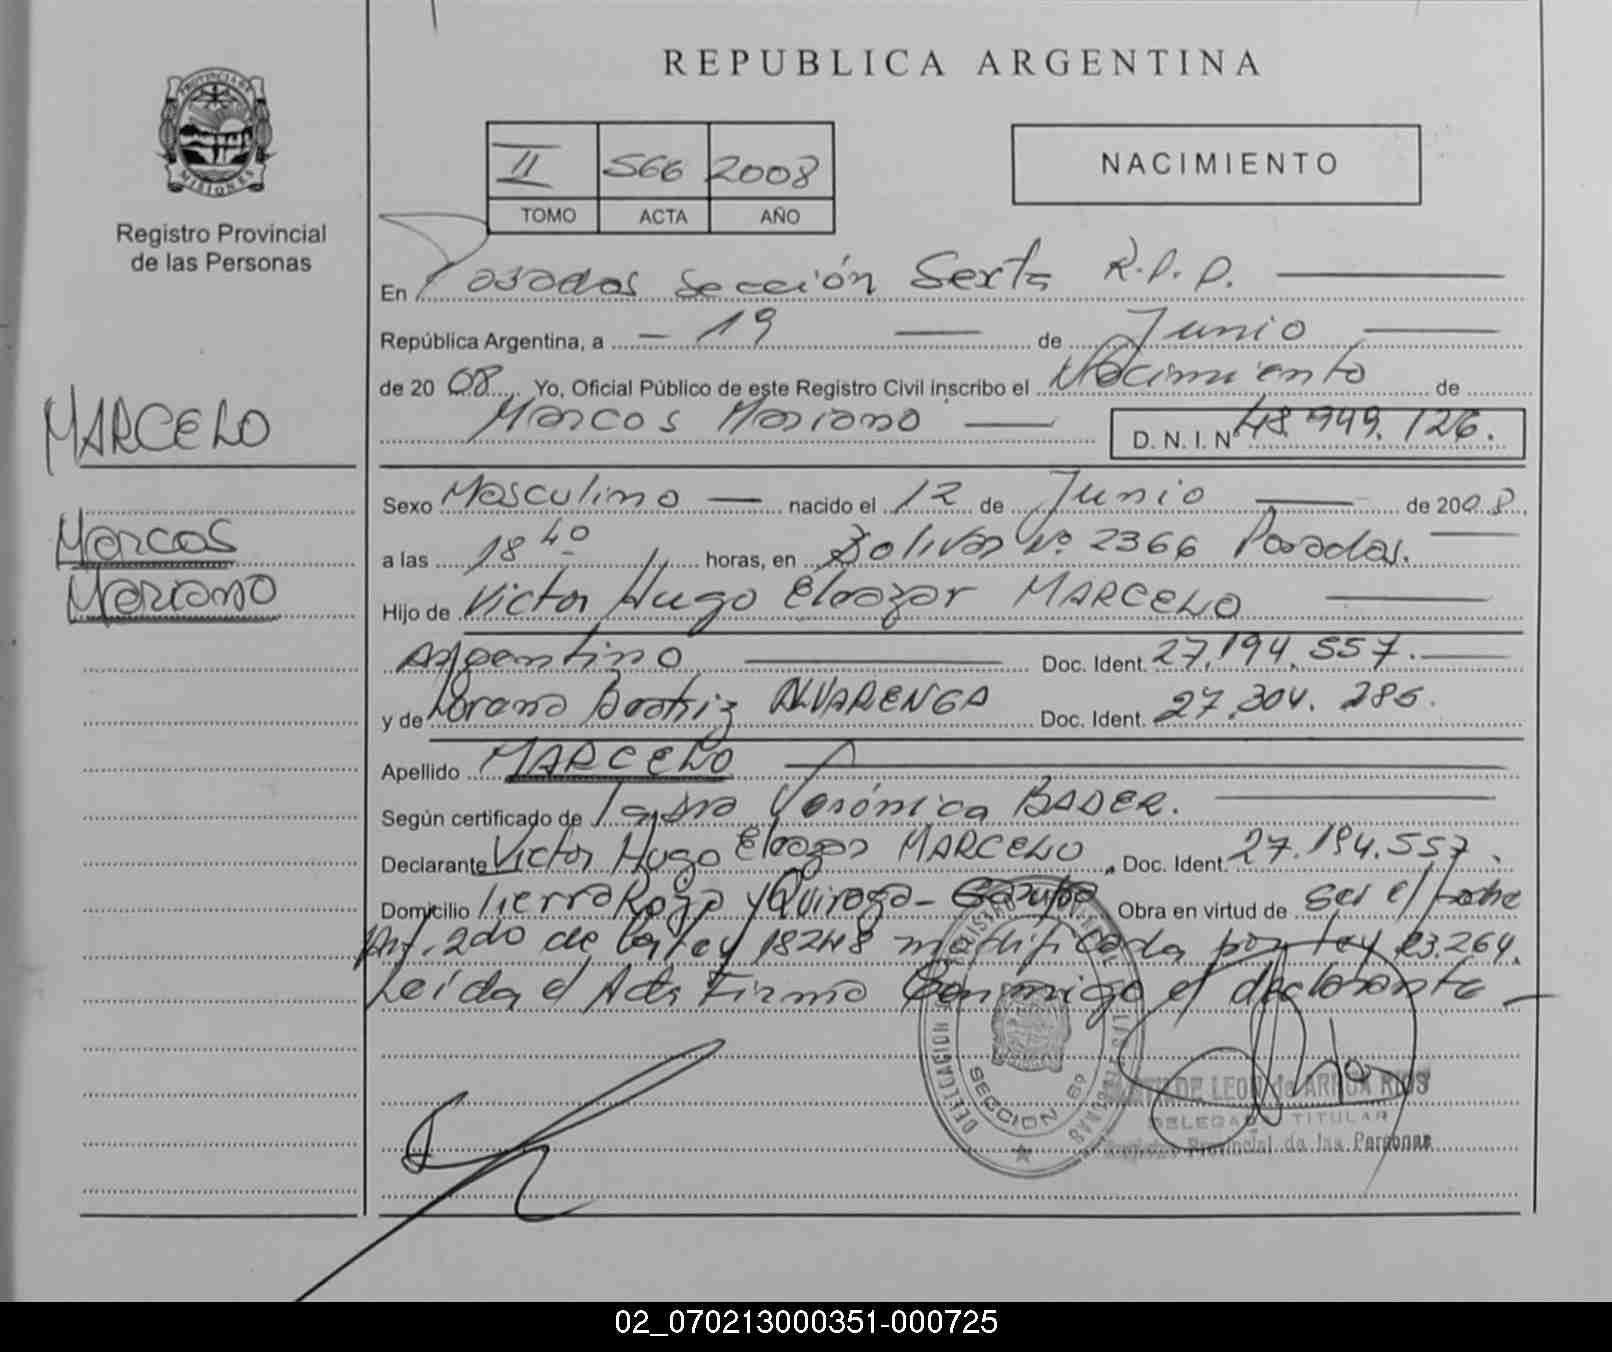 REPUBLICA ARGENTINA
PROVINCIA DE
MISIONES
Registro Provincial
de las Personas
II 566 2008
TOMO ACTA AÑO
NACIMIENTO
En Posadas Sección Sexta R.P.P.
República Argentina, a 19 de Junio
de 2008 Yo, Oficial Público de este Registro Civil inscribo el Nacimiento de
Marcos Mariano D.N.I. Nº 48.949.126.
MARCELO
Marcos
Mariano
Sexo Masculino nacido el 12 de Junio de 2008,
a las 18 40 horas, en Bolivar Nº 2366 Posadas.
Hijo de Victor Hugo Eleazar MARCELO
Argentino Doc. Ident. 27.194.557.
y de Lorena Beatriz ALVARENGA Doc. Ident. 27.304.286.
Apellido MARCELO
Según certificado de Verónica BADER.
Declarante Victor Hugo Eleazar MARCELO, Doc. Ident. 27.194.557.
Domicilio Tierra Roja y Quiroga - Obra en virtud de ser el Padre
Art. 2do de la Ley 18248 modificada por Ley 23.264.
Leida el Acta Firma Conmigo el declarante
SECCION 6º
LEON de ARRUA RIOS
DELEGADA TITULAR
Registro Provincial de las Personas
02_070213000351-000725